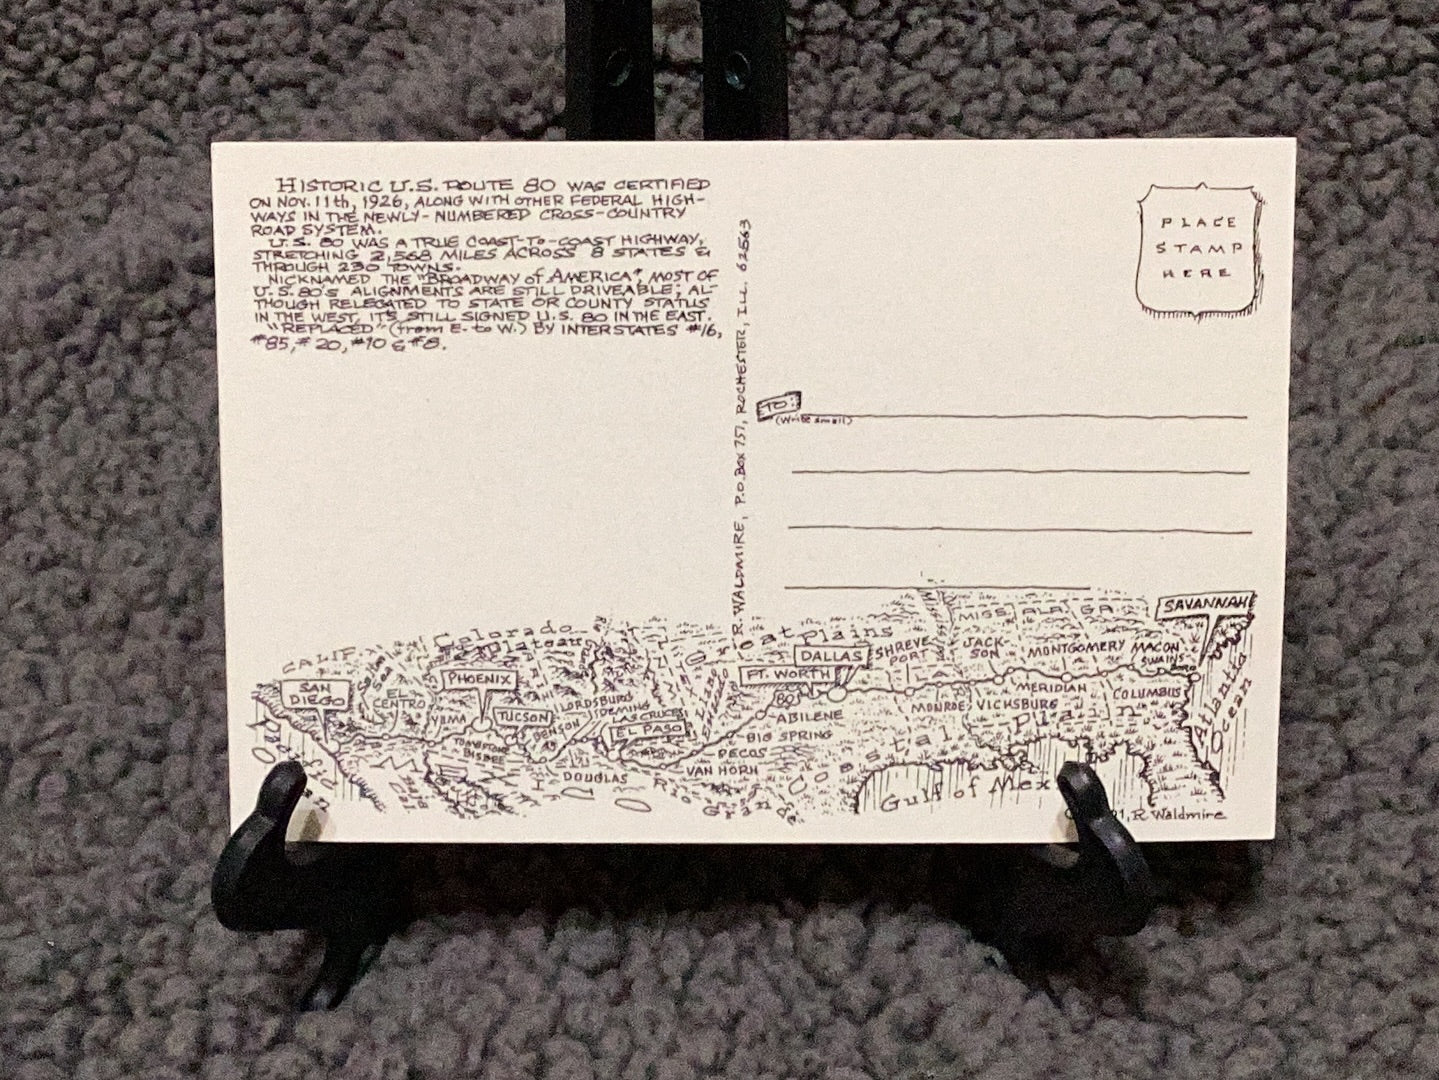 HISTORIC U.S. ROUTE 80 WAS CERTIFIED
ON NOV. 11th, 1926, ALONG WITH OTHER FEDERAL HIGH-
WAYS IN THE NEWLY-NUMBERED CROSS-COUNTRY
ROAD SYSTEM.
U.S. 80 WAS A TRUE COAST-TO-COAST HIGHWAY,
STRETCHING 2,568 MILES ACROSS 8 STATES &
THROUGH 230 TOWNS.
NICKNAMED THE "BROADWAY of AMERICA", MOST OF
U.S. 80'S ALIGNMENTS ARE STILL DRIVEABLE; AL-
THOUGH RELEGATED TO STATE OR COUNTY STATUS
IN THE WEST, IT'S STILL SIGNED U.S. 80 IN THE EAST.
"REPLACED" (from E. to W.) BY INTERSTATES #16,
#85, #20, #10 & #8.
R. WALDMIRE, P.O. BOX 757, ROCHESTER, ILL. 62563
PLACE
STAMP
HERE
TO:
(Write small)
CALIF
SAN
DIEGO
Salton
Sea
EL
CENTRO
YUMA
Colorado
Plateau
PHOENIX
TUCSON
TOMBSTONE
BISBEE
BENSON
DOUGLAS
LORDSBURG
DEMING
LAS CRUCES
EL PASO
VAN HORN
PECOS
BIG SPRING
ABILENE
80
FT. WORTH
DALLAS
Plains
SHREVE-
PORT
LA.
MONROE
VICKSBURG
JACK-
SON
MERIDIAN
MISS.
ALA.
GA.
MONTGOMERY
COLUMBUS
MACON
SWAINS-
BORO
SAVANNAH
Atlantic
Ocean
Coastal Plain
Gulf of Mex
Rio
Grande
Pacific
R. Waldmire